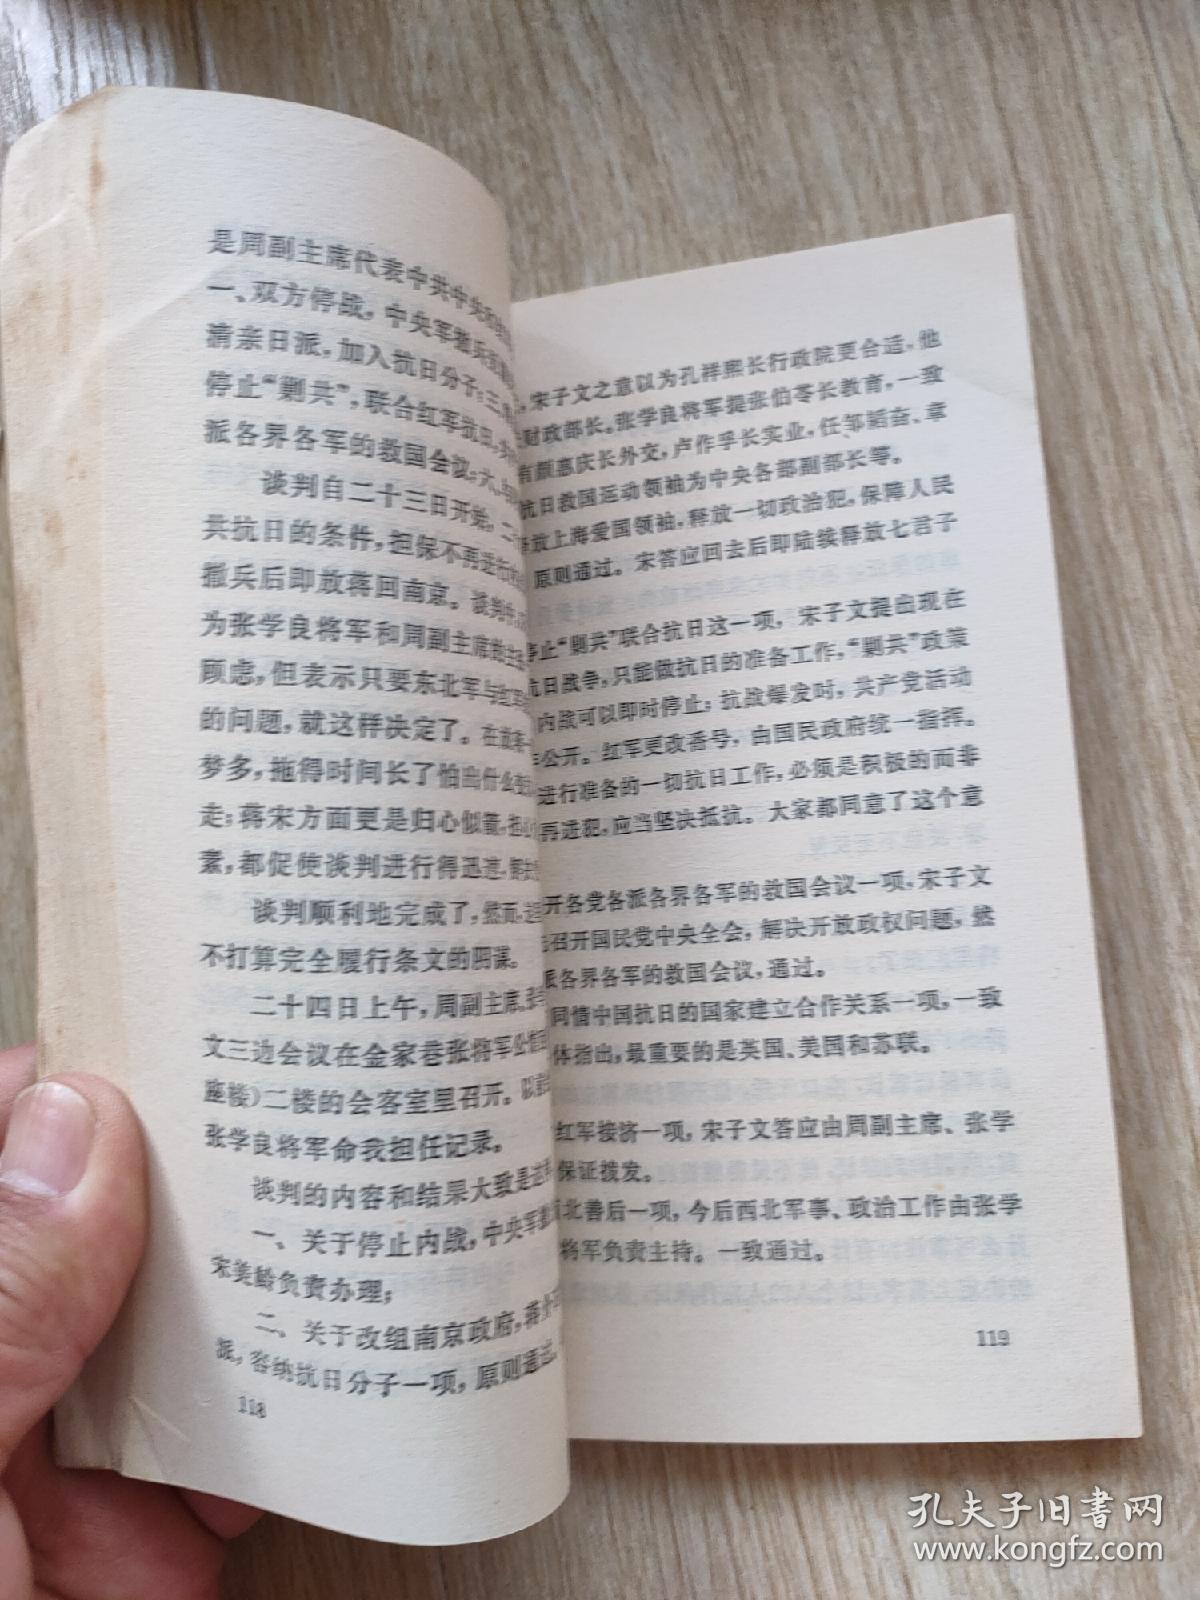 是周副主席代表中共中央
一、双方停战，中央军撤兵
清亲日派，加入抗日分子；三
停止“剿共”，联合红军抗日，
派各界各军的救国会议；六、
谈判自二十三日开始，二
共抗日的条件，担保不再进行
撤兵后即放蒋回南京。谈判中，
为张学良将军和周副主席
顾虑，但表示只要东北军与红军
的问题，就这样决定了。在放蒋
梦多，拖得时间长了怕出什么变
走；蒋宋方面更是归心似箭，
素，都促使谈判进行得迅速，
谈判顺利地完成了，然而，
不打算完全履行条文的阴谋。
二十四日上午，周副主席、张
文三边会议在金家巷张将军公馆
座楼）二楼的会客室里召开。以
张学良将军命我担任记录。
谈判的内容和结果大致是这
一、关于停止内战，中央军撤
宋美龄负责办理；
二、关于改组南京政府，蒋
派，容纳抗日分子一项，原则通过。
118
，宋子文之意以为孔祥熙长行政院更合适，他
财政部长。张学良将军提张伯苓长教育，一致
有颜惠庆长外交，卢作孚长实业，任邹韬奋、章
抗日救国运动领袖为中央各部副部长等。
放上海爱国领袖，释放一切政治犯，保障人民
原则通过。宋答应回去后即陆续释放七君子
停止“剿共”联合抗日这一项，宋子文提出现在
抗日战争，只能做抗日的准备工作，“剿共”政策
内战可以即时停止；抗战爆发时，共产党活动
公开。红军更改番号，由国民政府统一指挥。
进行准备的一切抗日工作，必须是积极的而非
再进犯，应当坚决抵抗。大家都同意了这个意
开各党各派各界各军的救国会议一项，宋子文
召开国民党中央全会，解决开放政权问题，然
派各界各军的救国会议，通过。
同情中国抗日的国家建立合作关系一项，一致
体指出，最重要的是英国、美国和苏联。
红军接济一项，宋子文答应由周副主席、张学
保证拨发。
北善后一项，今后西北军事、政治工作由张学
将军负责主持。一致通过。
119
孔夫子旧书网
www.kongfz.com